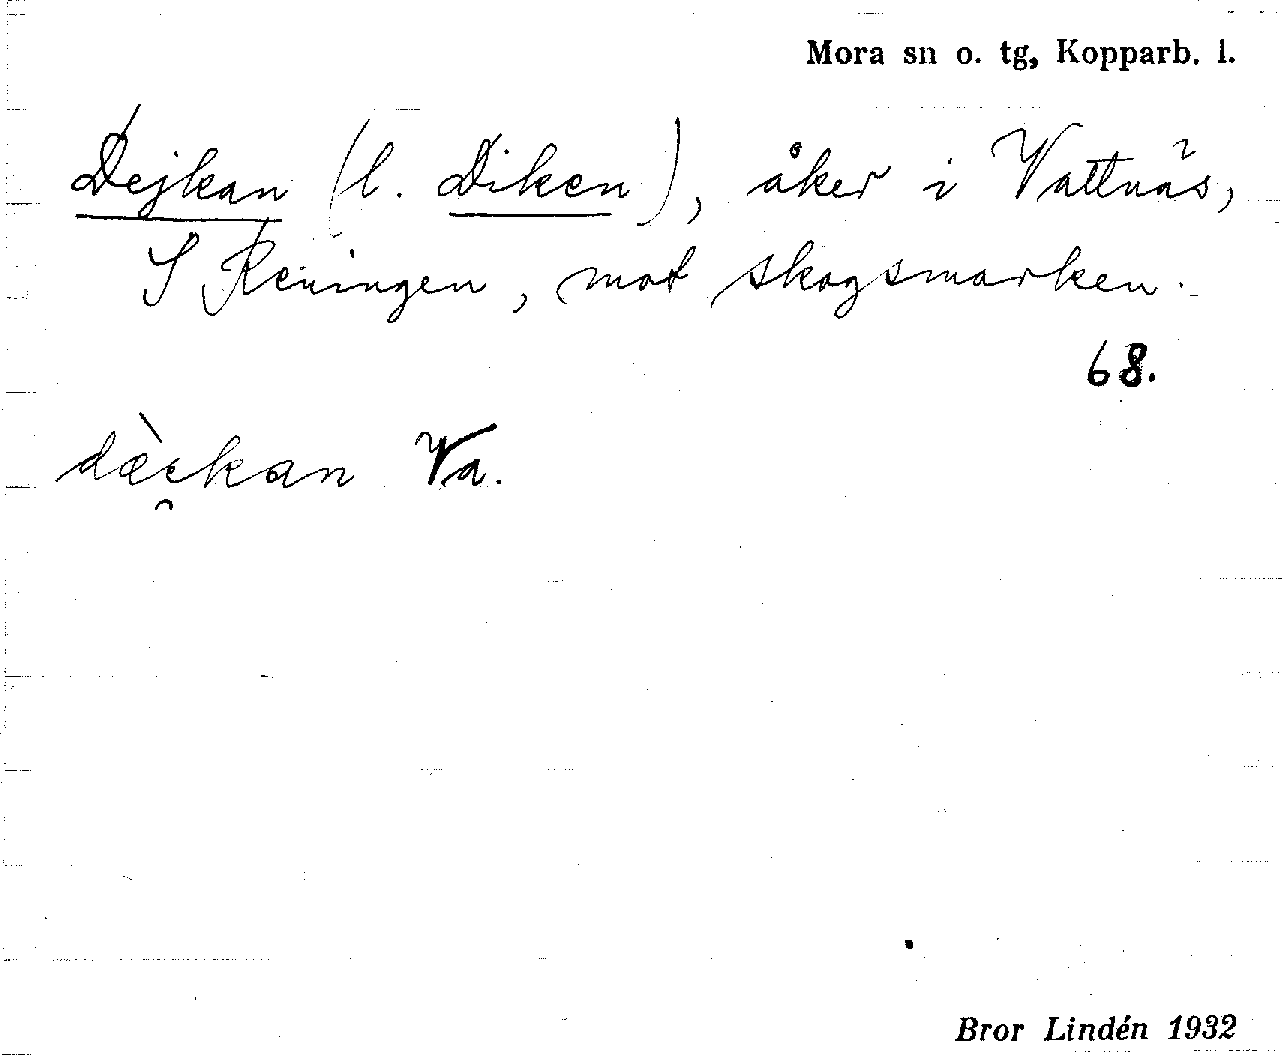 Mora sn o. tg, Kopparb. l.
Dejkan (l. Diken), åker i Vattnäs,
S Reningen, mot skogsmarken.
68.
dàe̯kan Va.
Bror Lindén 1932